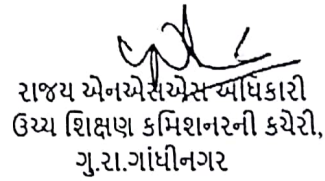 રાજય એનએસએસ અધિકારી
ઉચ્ચ શિક્ષણ કમિશનરની કચેરી,
ગુ.રા.ગાંધીનગર